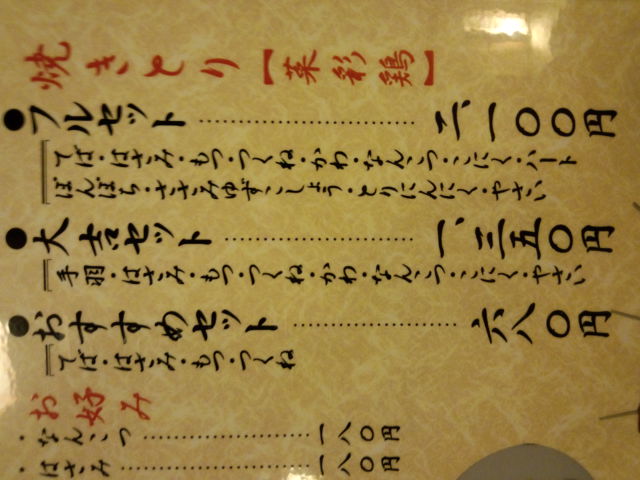 焼きとり【菜彩鶏】
●フルセット……………………二、一〇〇円
てば・はさみ・もつ・つくね・かわ・なんこつ・こにく・ハート
ぼんぼち・ささみゆずこしょう・とりにんにく・やさい
●大吉セット…………………一、三五〇円
手羽・はさみ・もつ・つくね・かわ・なんこつ・こにく・やさい
●おすすめセット………………六八〇円
てば・はさみ・もつ・つくね
お好み
・なんこつ…………………一八〇円
・はさみ……………………一八〇円